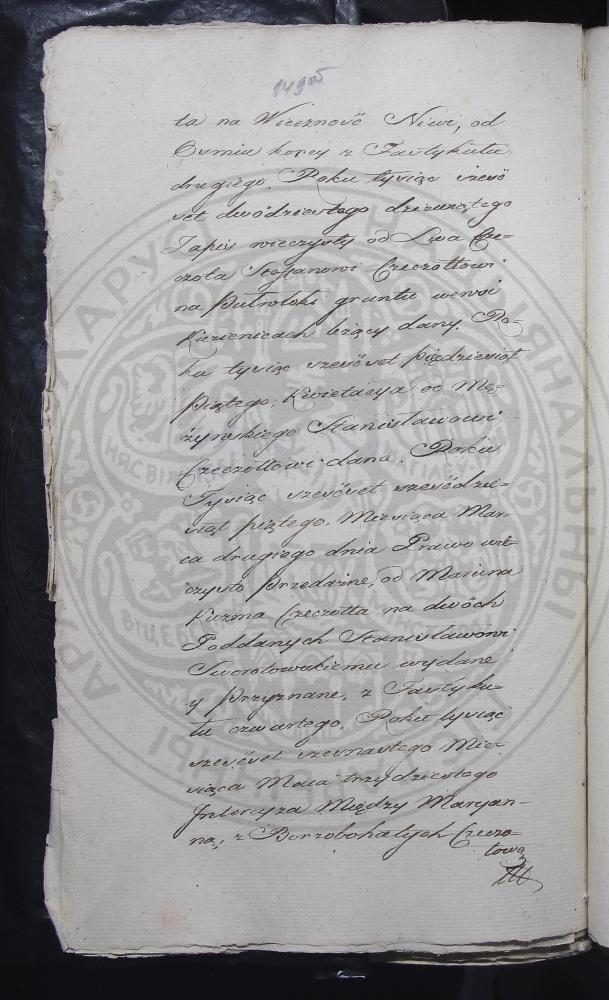 149 об
ta na Wieczność Niwi, od
Osmiu kopcy z Fastykułu
drugiego. Roku tysiąc sześć
set dwódziestego dziewiątego
Zapis wieczysty od Lwa Cze-
czota Stefanowi Czeczottowi
na Pułwłoki gruntu wewsi
Kuzienicach leżący dany. Ro-
ku tysiąc sześćset pięćdziesiąt
Piątego, Kwietacya od Mę-
żynskiego Stanisławowi
Czeczottowi dana. Roku
Tysiąc sześćset sześćdzie-
siąt piątego, Miesiąca Mar-
ca drugiego dnia Prawo wie-
czysto Przedażne, od Marcina
Kuzma Czeczotta na dwóch
Poddanych Stanisławowi
Tworotowskiemu wydane
y Przyznane, z Fastyku-
łu czwartego. Roku tysiąc
sześćset szesnastego Mie-
siąca Maia trzydziestego
Intercyza Między Maryan-
ną, z Borzobohatych Czeczo-
tową
АРХІВАЛЬНЫ